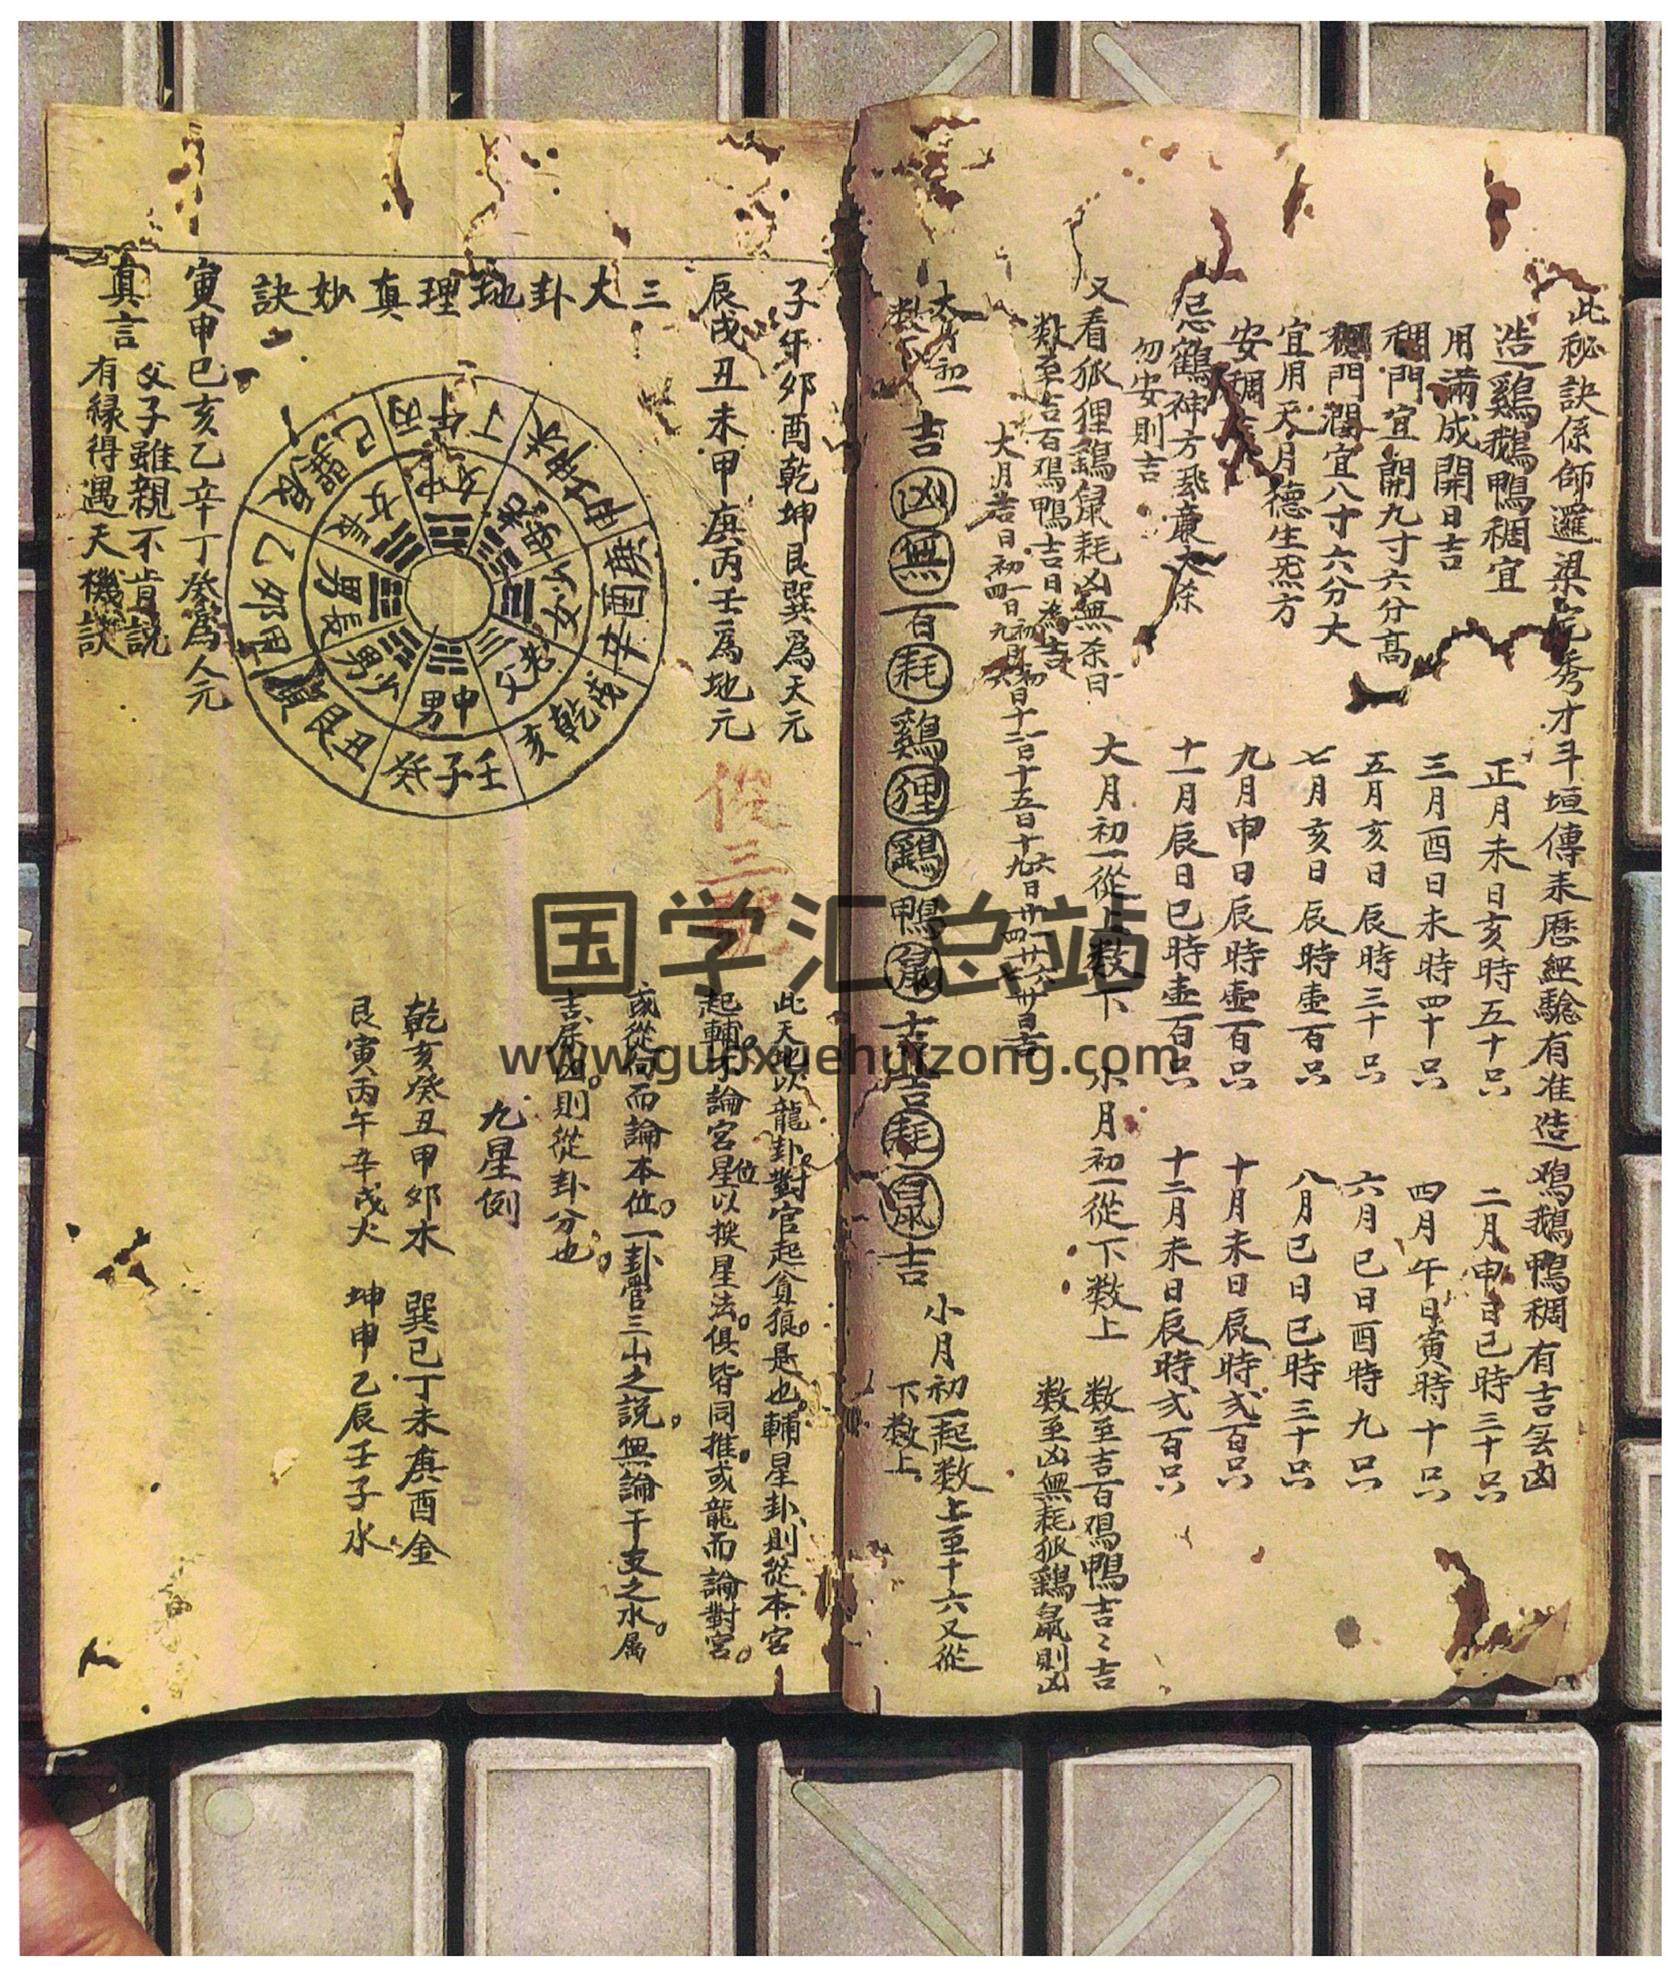 此秘訣係師邏梁完秀才斗垣傳来歷經驗有准造鳮鵝鴨稠有吉無凶
造鷄鵝鴨稠宜
用滿成開日吉
稠門宜開九寸六分高
稠門濶宜八寸六分大
宜用天月德生炁方
安稠
忌鶴神方
勿安則吉
正月未日亥時五十只
二月申日巳時三十只
三月酉日未時四十只
四月午日寅時十只
五月亥日辰時三十只
六月巳日酉時九只
七月亥日辰時壹百只
八月巳日巳時三十只
九月申日辰時壹百只
十月未日辰時弍百只
十一月辰日巳時壹百只
十二月未日辰時弍百只
又看狐狸鷄䑕耗凶無杀日
大月初一從上数下
小月初一從下数上
数至吉百鳮鴨吉日為吉
数至吉百鳮鴨吉〻吉
数至凶無耗狐鷄䑕則凶
大月初一
数下
吉凶無百耗鷄狸鷄鴨䑕吉吉耗䑕吉
小月初一起数上至十六又從
下数上
子午夘酉乾坤艮巽為天元
辰戌丑未甲庚丙壬為地元
三大卦地理真妙訣
寅申巳亥乙辛丁癸為人元
真言
父子雖親不肯説
有緣得遇天機訣
丙午丁
未坤申
庚酉辛
戌乾亥
壬子癸
丑艮寅
甲夘乙
辰巽巳
中女
老母
少女
老父
中男
少男
長男
長女
此天地以龍卦對官起貪狼是也輔星卦則從本宮
起輔才論宮星位以挨星法俱皆同推或龍而論對宮
或從向而論本位一卦管三山之説無論干支之水属
吉屬凶則從卦分也
九星例
乾亥癸丑甲夘木
巽巳丁未庚酉金
艮寅丙午辛戌火
坤申乙辰壬子水
国学汇总站
www.guoxuehuizong.com